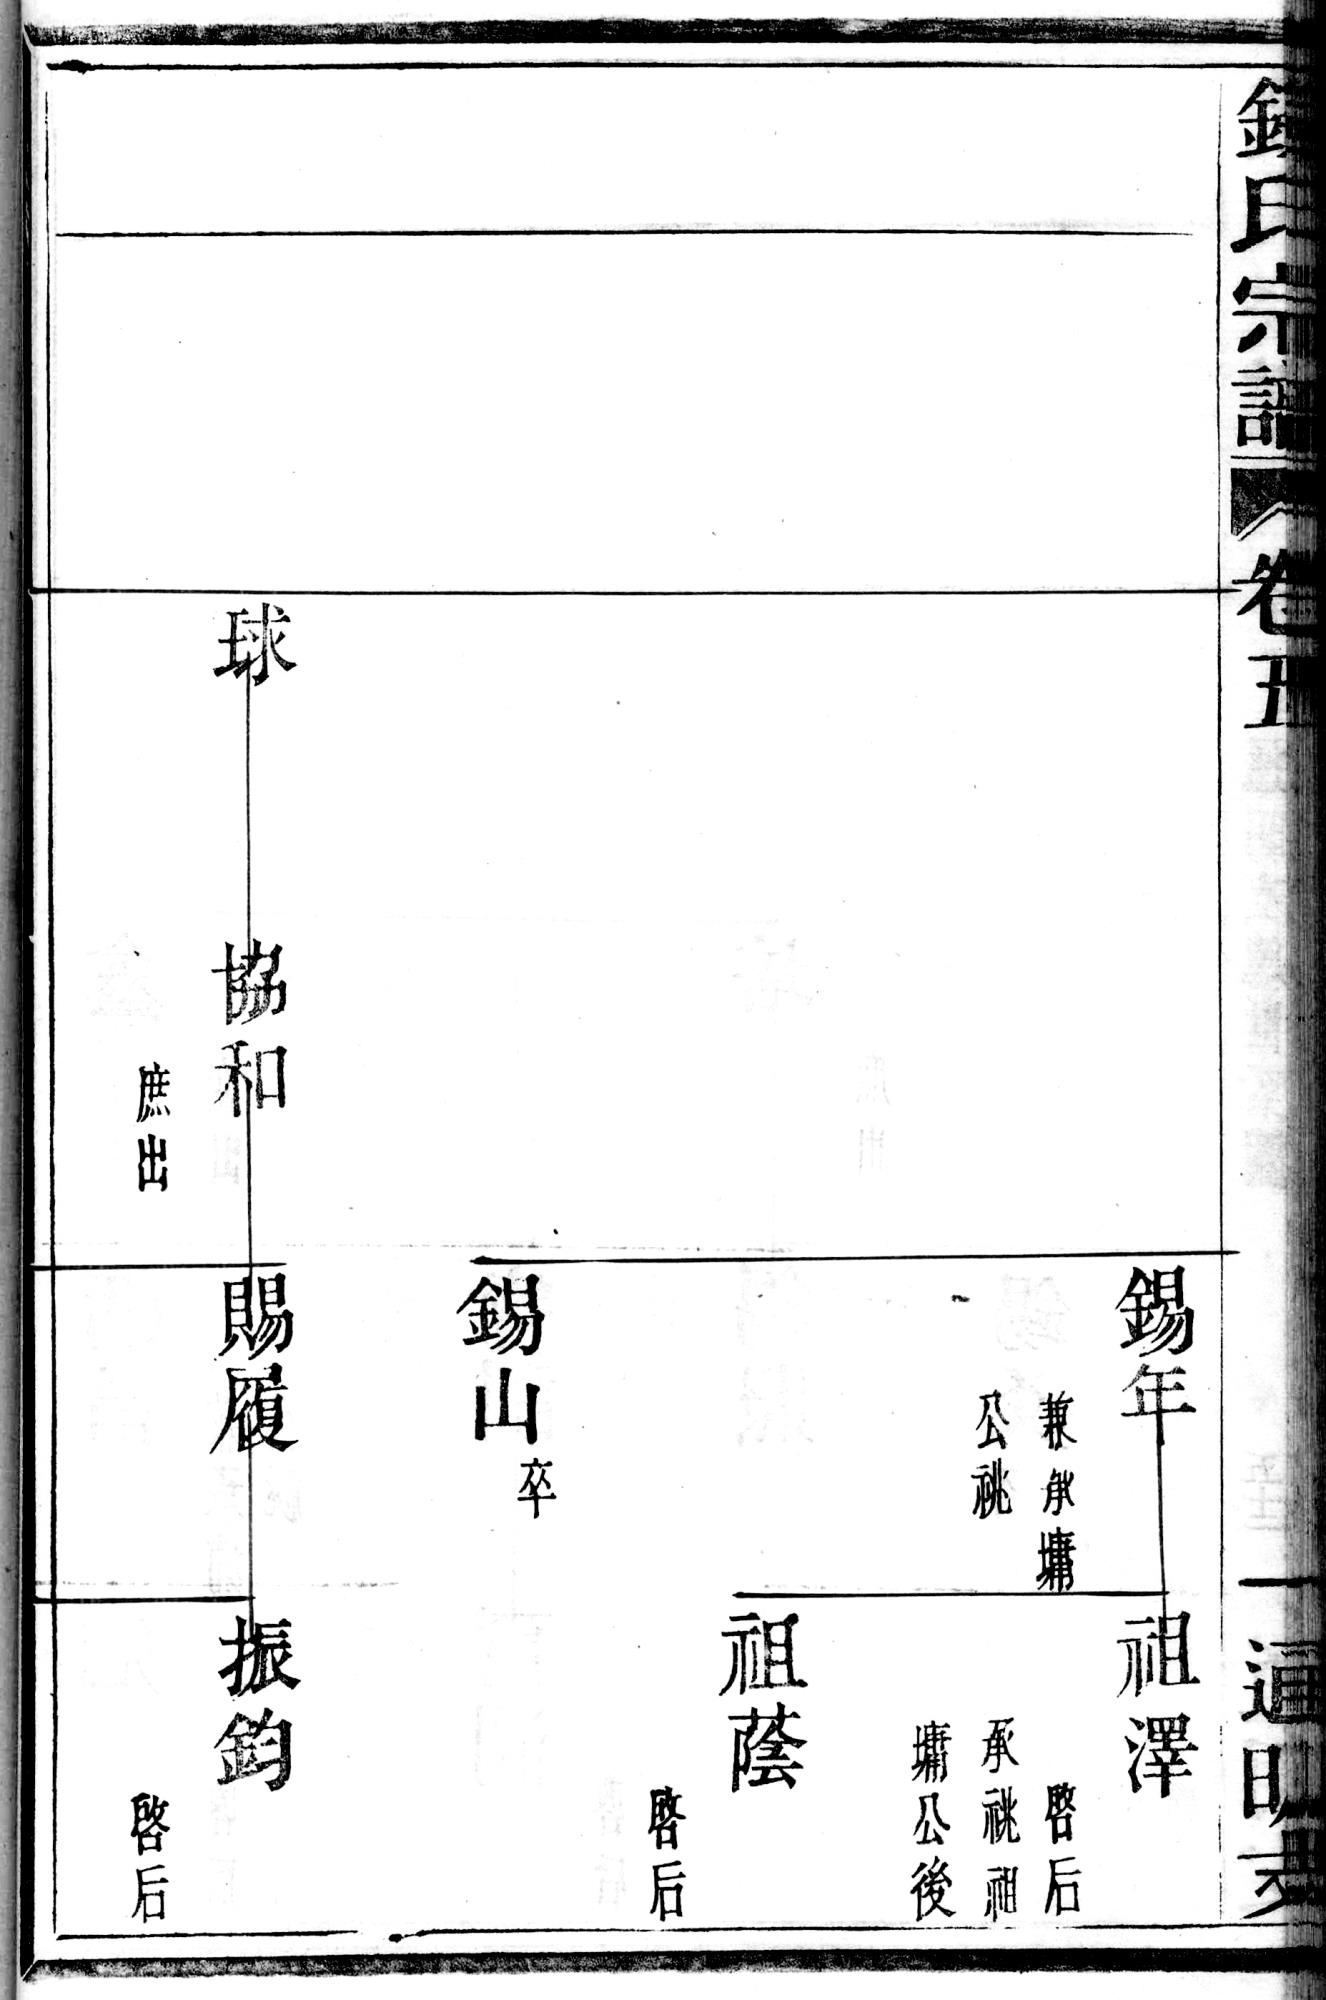 氏宗譜
卷五
通明支
錫年
兼承墉
公祧
祖澤
啓后
承祧祖
墉公後
祖蔭
啓后
錫山
卒
球
協和
庶出
賜履
振鈞
啓后